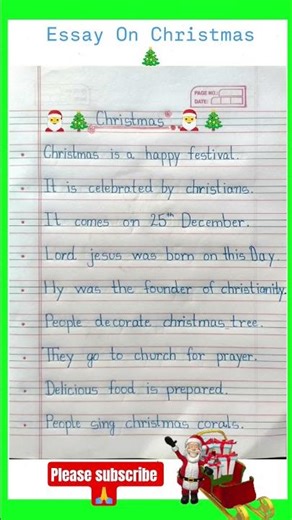 Essay On Christmas
PAGE NO.:
DATE:
Christmas
Christmas is a happy festival.
It is celebrated by christians.
It comes on 25th December.
Lord jesus was born on this Day.
Hy was the founder of christianity.
People decorate christmas tree.
They go to church for prayer.
Delicious food is prepared.
People sing christmas corals.
Please subscribe